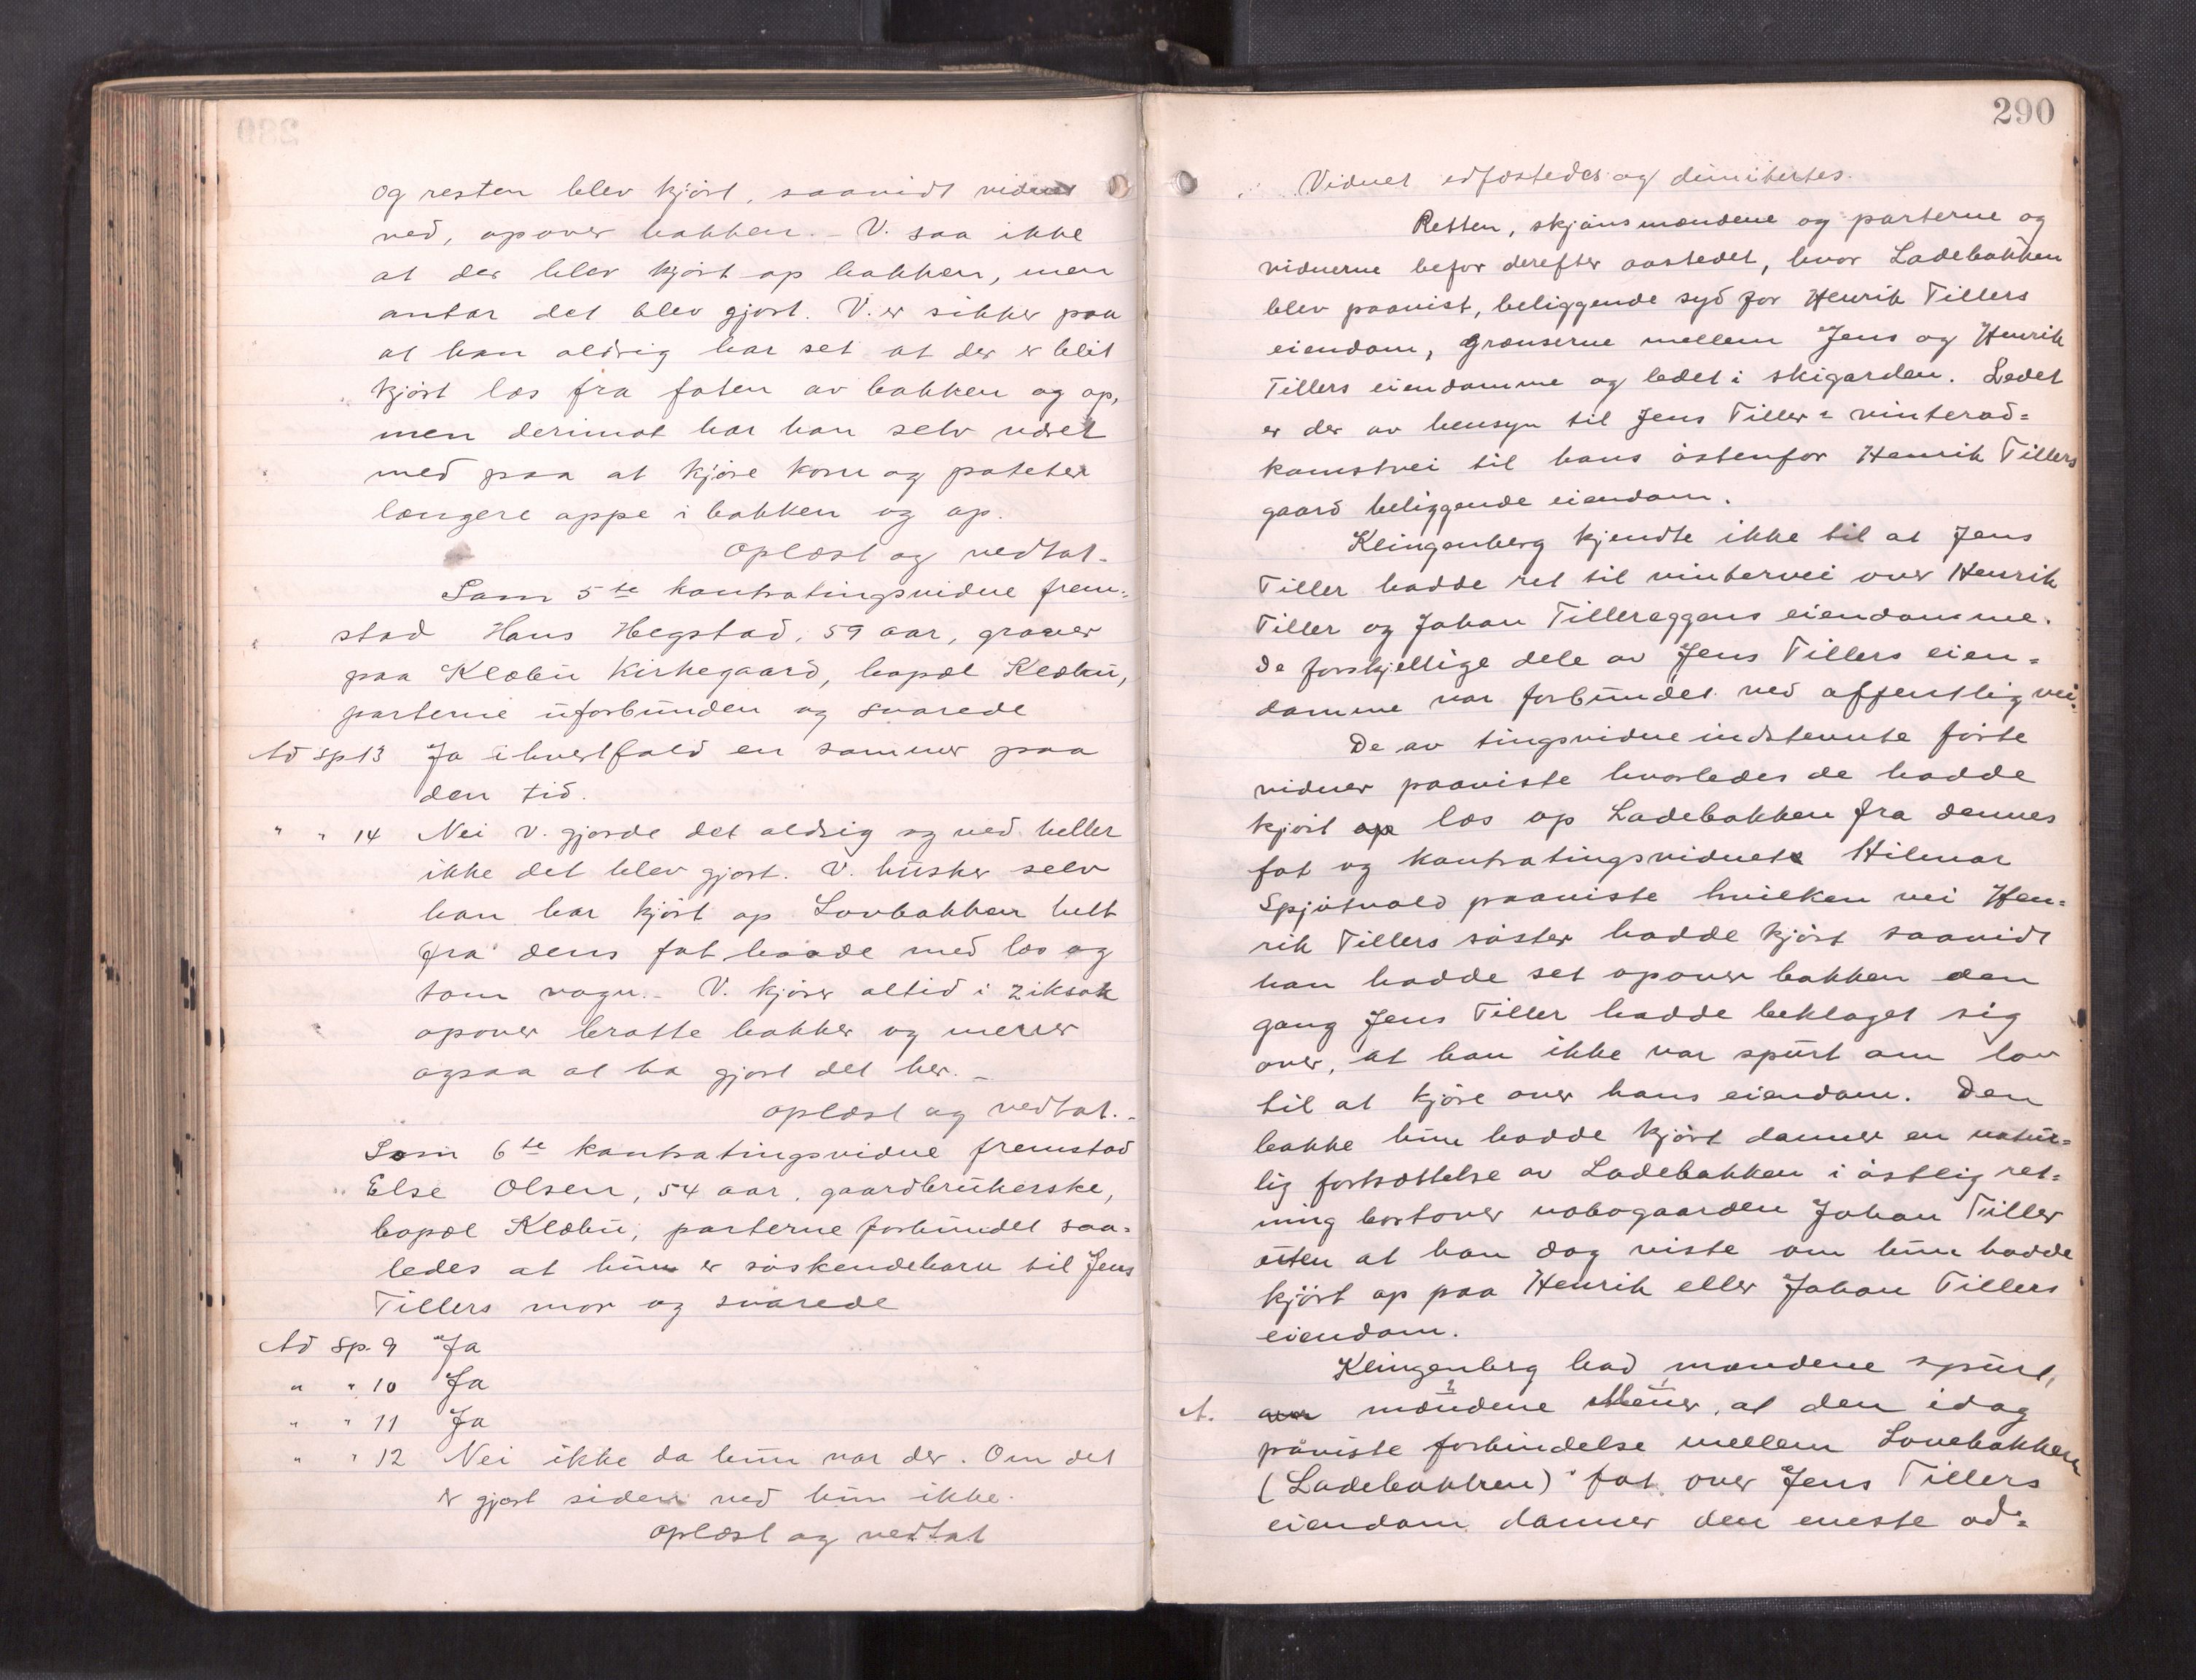 og resten blev kjört, saavidt vidnet
ved, opover bakken. - V. saa ikke
at der blev kjört op bakken, men
antar det blev gjort. V. er sikker paa
at han aldrig har set at der er blit
kjört læs fra foten av bakken og op,
men derimot har han selv været
med paa at kjöre korn og poteter
længere oppe i bakken og op.
Oplæst og vedtat.
Som 5te kontratingsvidne frem-
stod Hans Hegstad, 59 aar, graver
paa Klæbu Kirkegaard, bopæl Klæbu,
parterne uforbunden og svarede
Ad sp 13 Ja ihvertfald en sommer paa
den tid.
" " 14 Nei v. gjorde det aldrig og ved heller
ikke det blev gjort. V. husker selv
han har kjört op Lovbakken helt
fra dens fot baade med læs og
tom vogn. - V. kjörer altid i ziksak
opover bratte bakker og mener
ogsaa at ha gjort det her. -
Oplæst og vedtat. -
Som 6te kontratingsvidne fremstod
Else Olsen, 54 aar, gaardbrukerske,
bopæl Klæbu, parterne forbundet saa-
ledes at hun er söskendebarn til Jens
Tillers mor og svarede
Ad sp. 9 Ja
" " 10 Ja
" " 11 Ja
" " 12 Nei ikke da hun var der. Om det
er gjort siden ved hun ikke.
Oplæst og vedtat
290
Vidnet edfæstedes og dimitertes.
Retten, skjönsmændene og parterne og
vidnerne befor derefter aastedet, hvor Ladebakken
blev paavist, beliggende syd for Henrik Tillers
eiendom, grænserne mellem Jens og Henrik
Tillers eiendomme og ledet i skigarden. Ledet
er der av hensyn til Jens Tillers vinterad-
komstvei til hans östenfor Henrik Tillers
gaard beliggende eiendom.
Klingenberg kjendte ikke til at Jens
Tiller hadde ret til vintervei over Henrik
Tiller og Johan Tillereggens eiendomme.
De forskjellige dele av Jens Tillers eien-
domme var forbundet ved offentlig vei.
De av tingsvidne indstevnte förte
vidner paaviste hvorledes de hadde
kjört op læs op Ladebakken fra dennes
fot og kontratingsvidnet Hilmar
Spjötvold paaviste hvilken vei Hen-
rik Tillers söster hadde kjört saavidt
han hadde set opover bakken den
gang Jens Tiller hadde beklaget sig
over, at han ikke var spurt om lov
til at kjöre over hans eiendom. Den
bakke hun hadde kjört danner en natur-
lig fortsættelse av Ladebakken i östlig ret-
ning bortover nabogaarden Johan Tiller
uten at han dog viste om hun hadde
kjört op paa Henrik eller Johan Tillers
eiendom.
Klingenberg bad mændene spurt,
A. om mændene mener, at den idag
påviste forbindelse mellem Lovebakken
(Ladebakken) fot over Jens Tillers
eiendom danner den eneste ad-